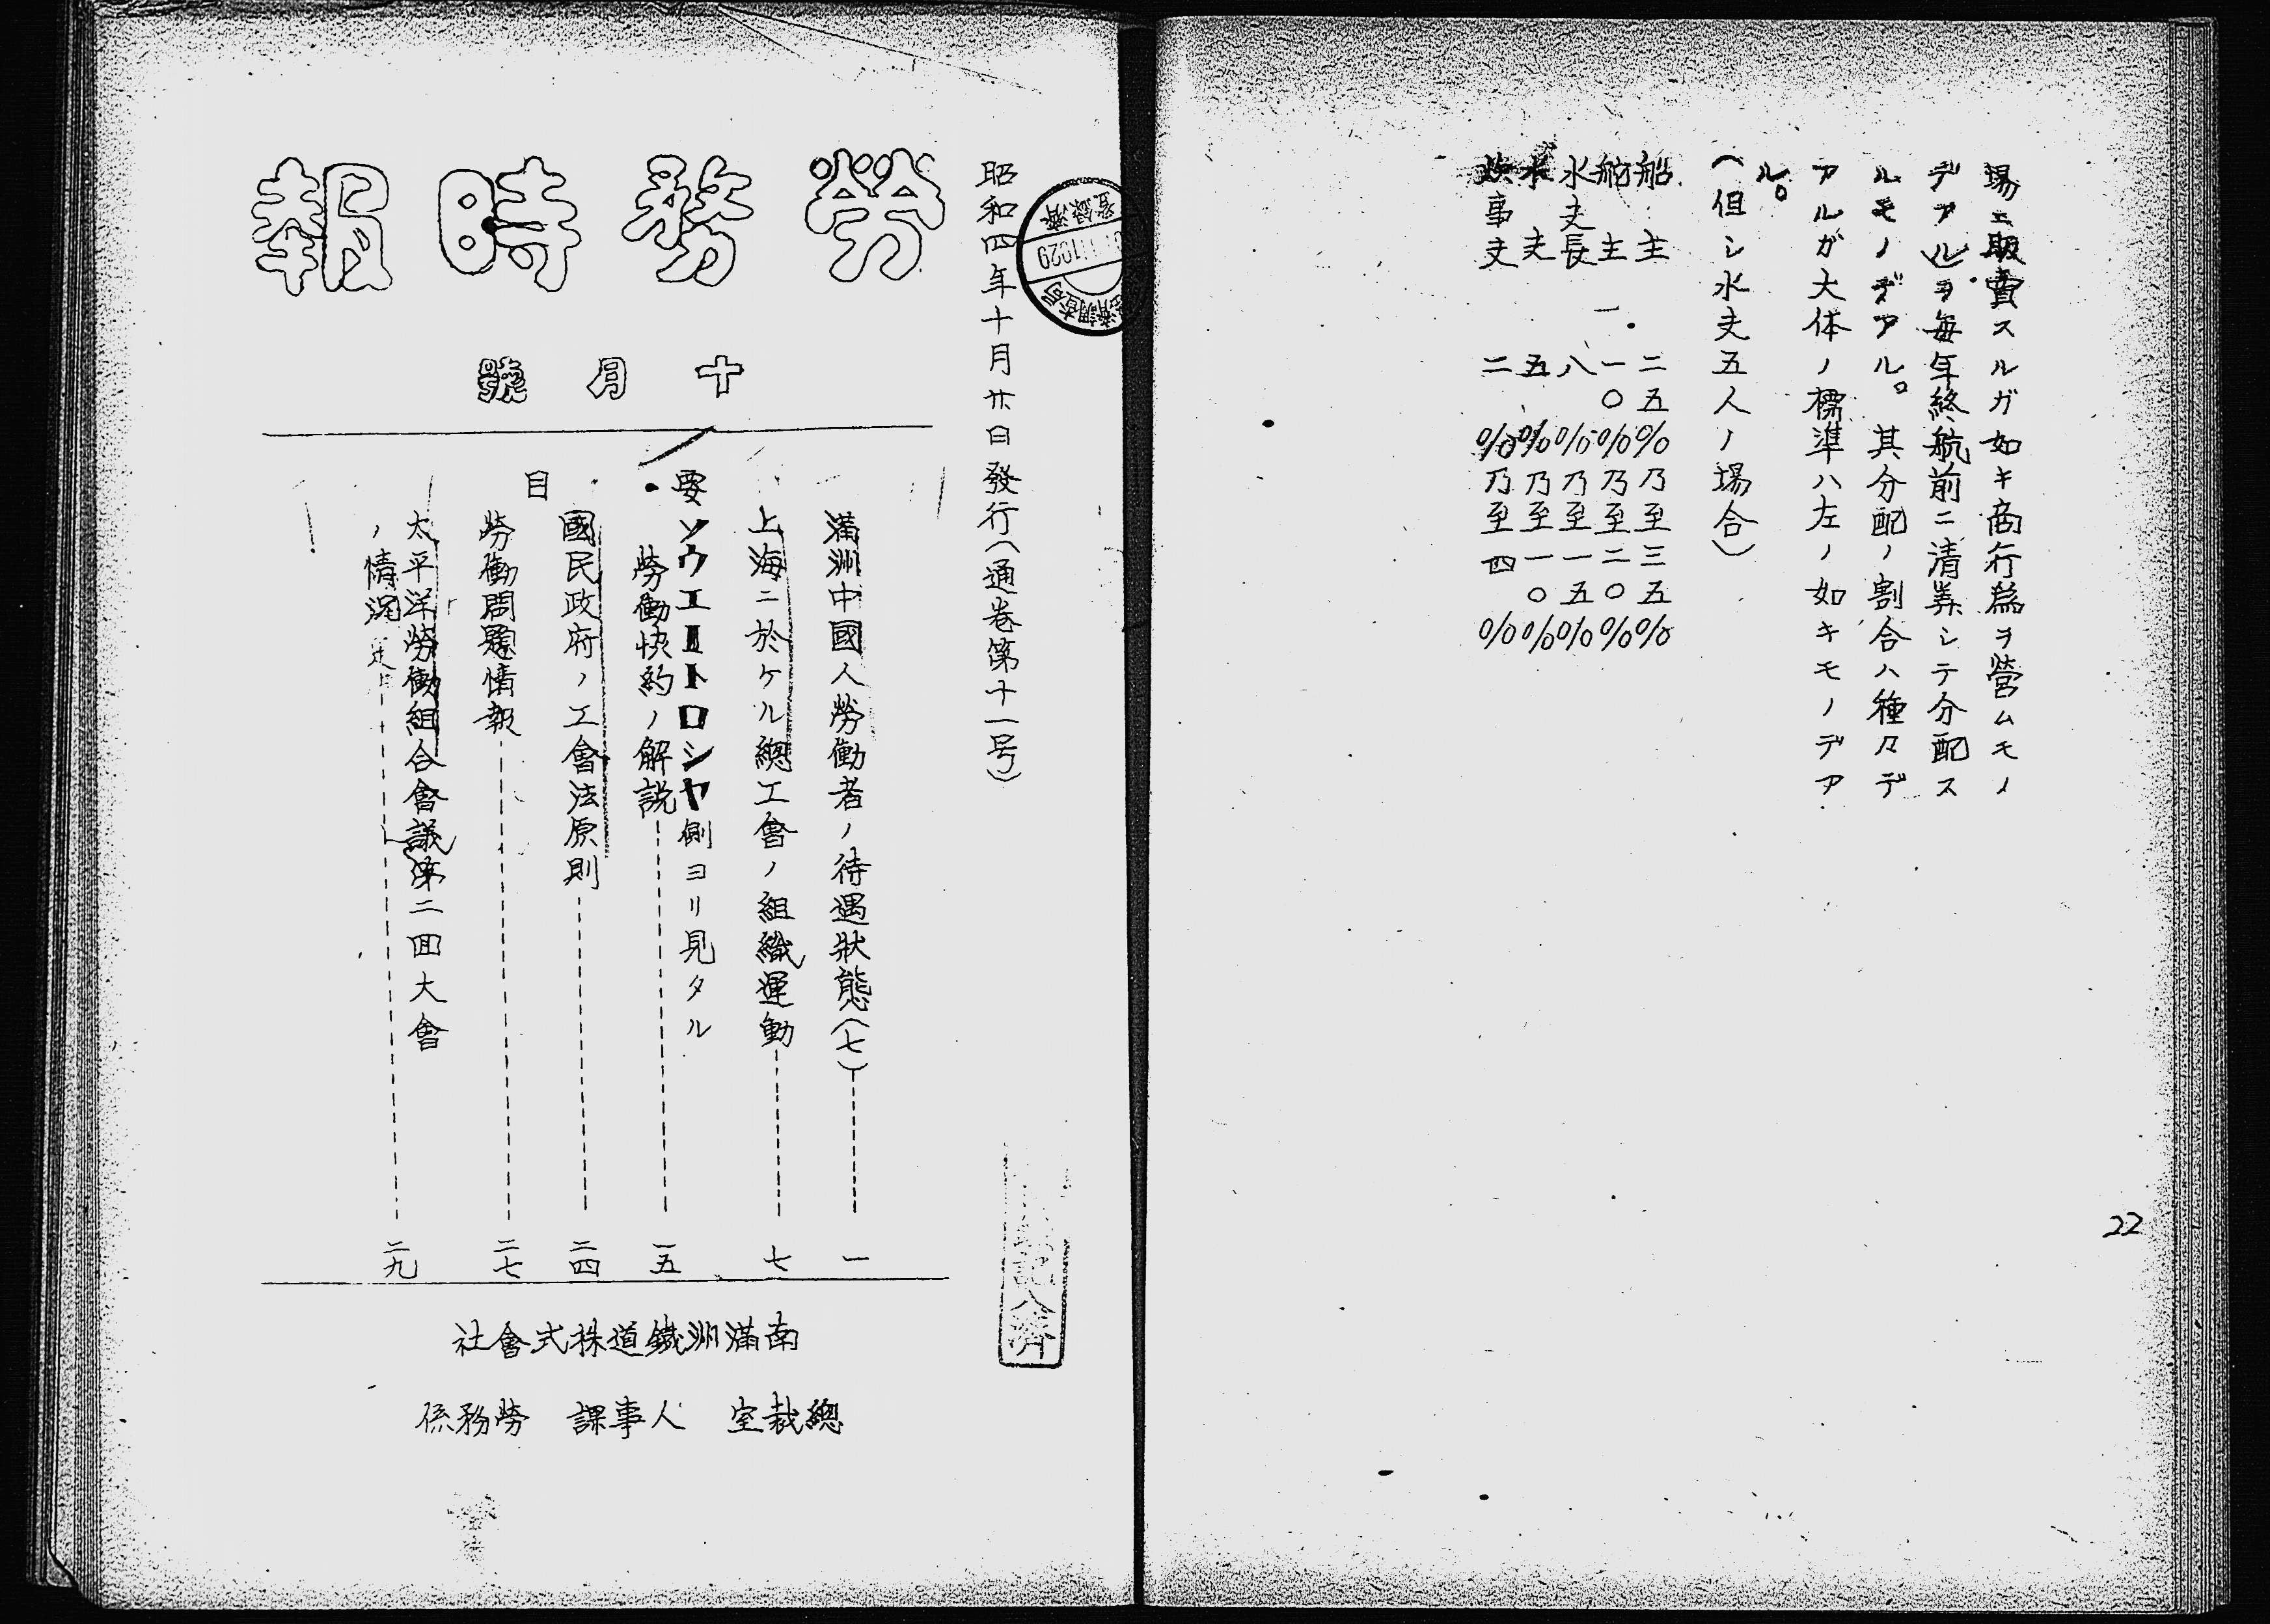 場ニ販賣スルガ如キ商行爲ヲ營ムモノ
デアルヲ毎年終航前ニ清算シテ分配ス
ルモノデアル。其分配ノ割合ハ種々デ
アルガ大体ノ標準ハ左ノ如キモノデア
ル。
(但シ水夫五人ノ場合)
船主 二五%乃至三五%
舵主 一〇%乃至二〇%
水夫長 八%乃至一五%
水夫 五%乃至一〇%
炊事夫 二%乃至四%
22
昭和四年十月廿日發行(通卷第十一号)
勞務時報
十月號
要目
滿洲中國人勞働者ノ待遇狀態(七) 一
上海ニ於ケル總工會ノ組織運動 七
ソウエートロシヤ側ヨリ見タル
勞働快約ノ解説 一五
國民政府ノ工會法原則 二四
勞働問題情報 二七
太平洋勞働組合會議第二囬大會
ノ情況 二九
南滿洲鐵道株式會社
總裁室 人事課 勞務係
登錄濟
1929
記入濟